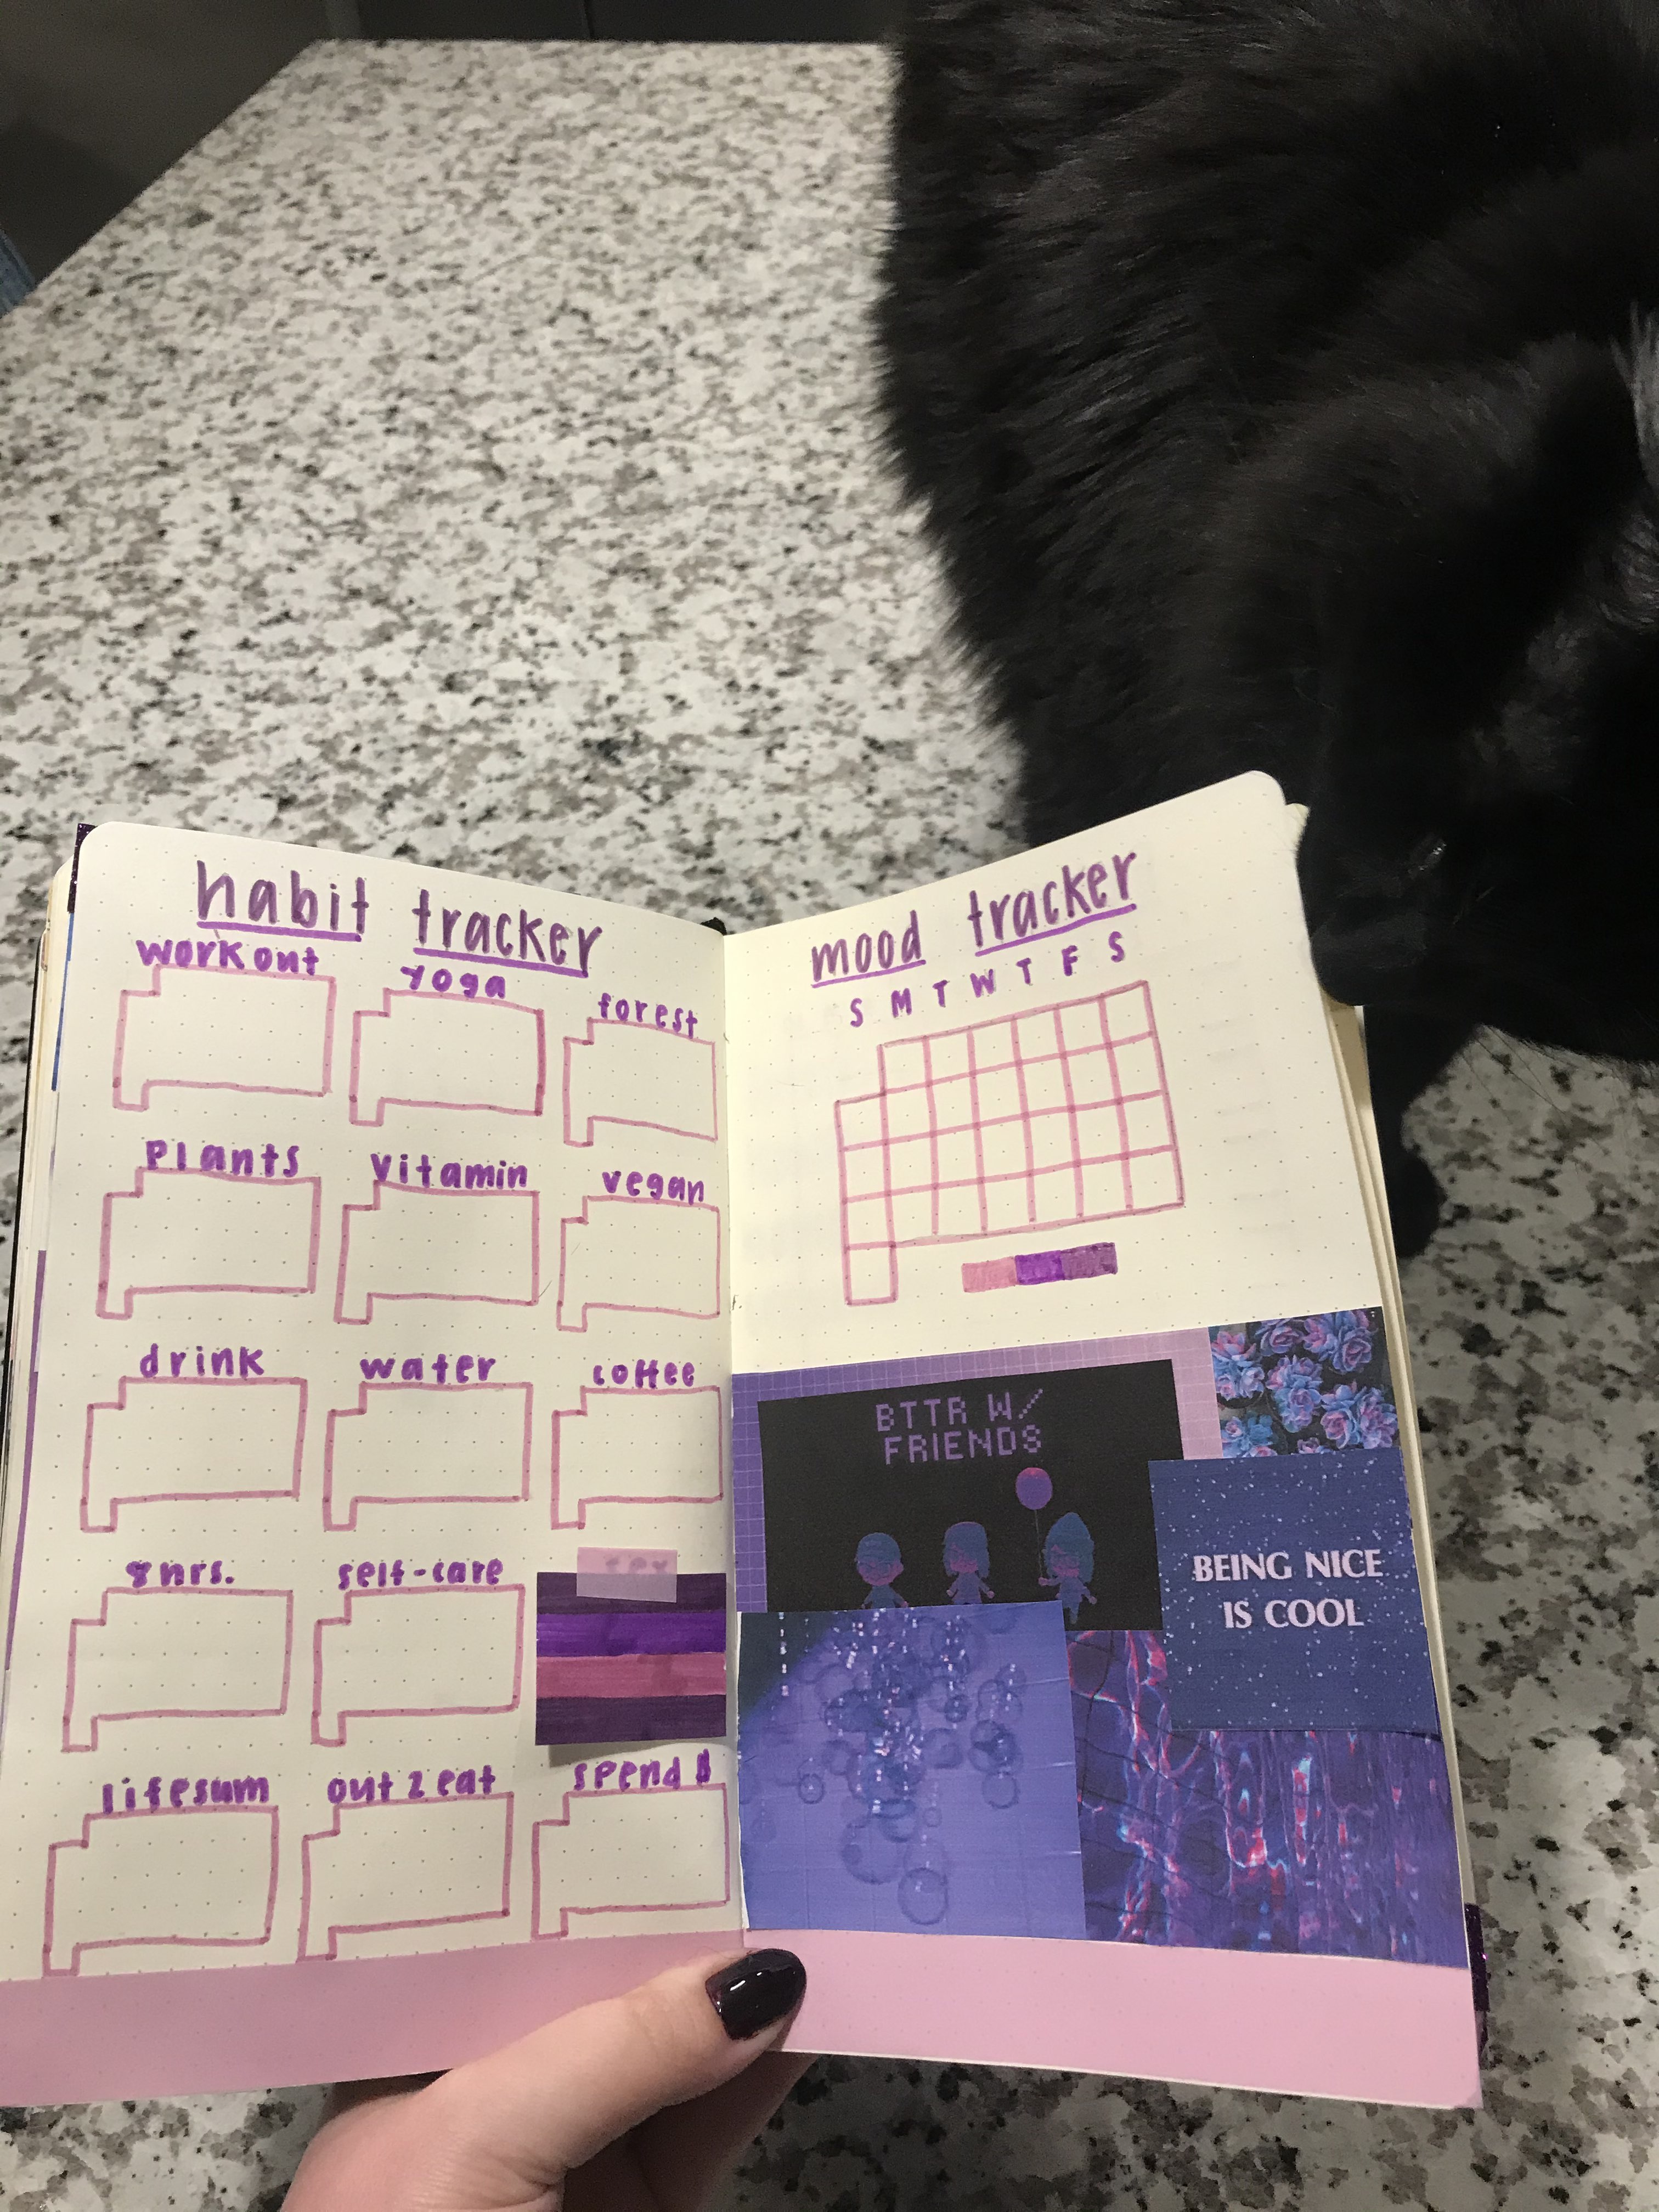 habit tracker
workout
yoga
forest
plants
vitamin
vegan
drink
water
coffee
8hrs.
self-care
lifesum
out 2 eat
spend $
mood tracker
S M T W T F S
BTTR W/
FRIENDS
BEING NICE
IS COOL